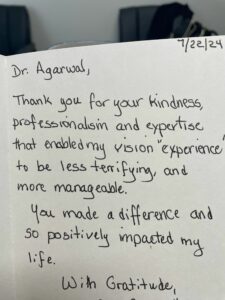 7/22/24
Dr. Agarwal,
Thank you for your kindness,
professionalsim and expertise
that enabled my vision "experience"
to be less terrifying, and
more manageable.
You made a difference and
so positively impacted my
life.
With Gratitude,